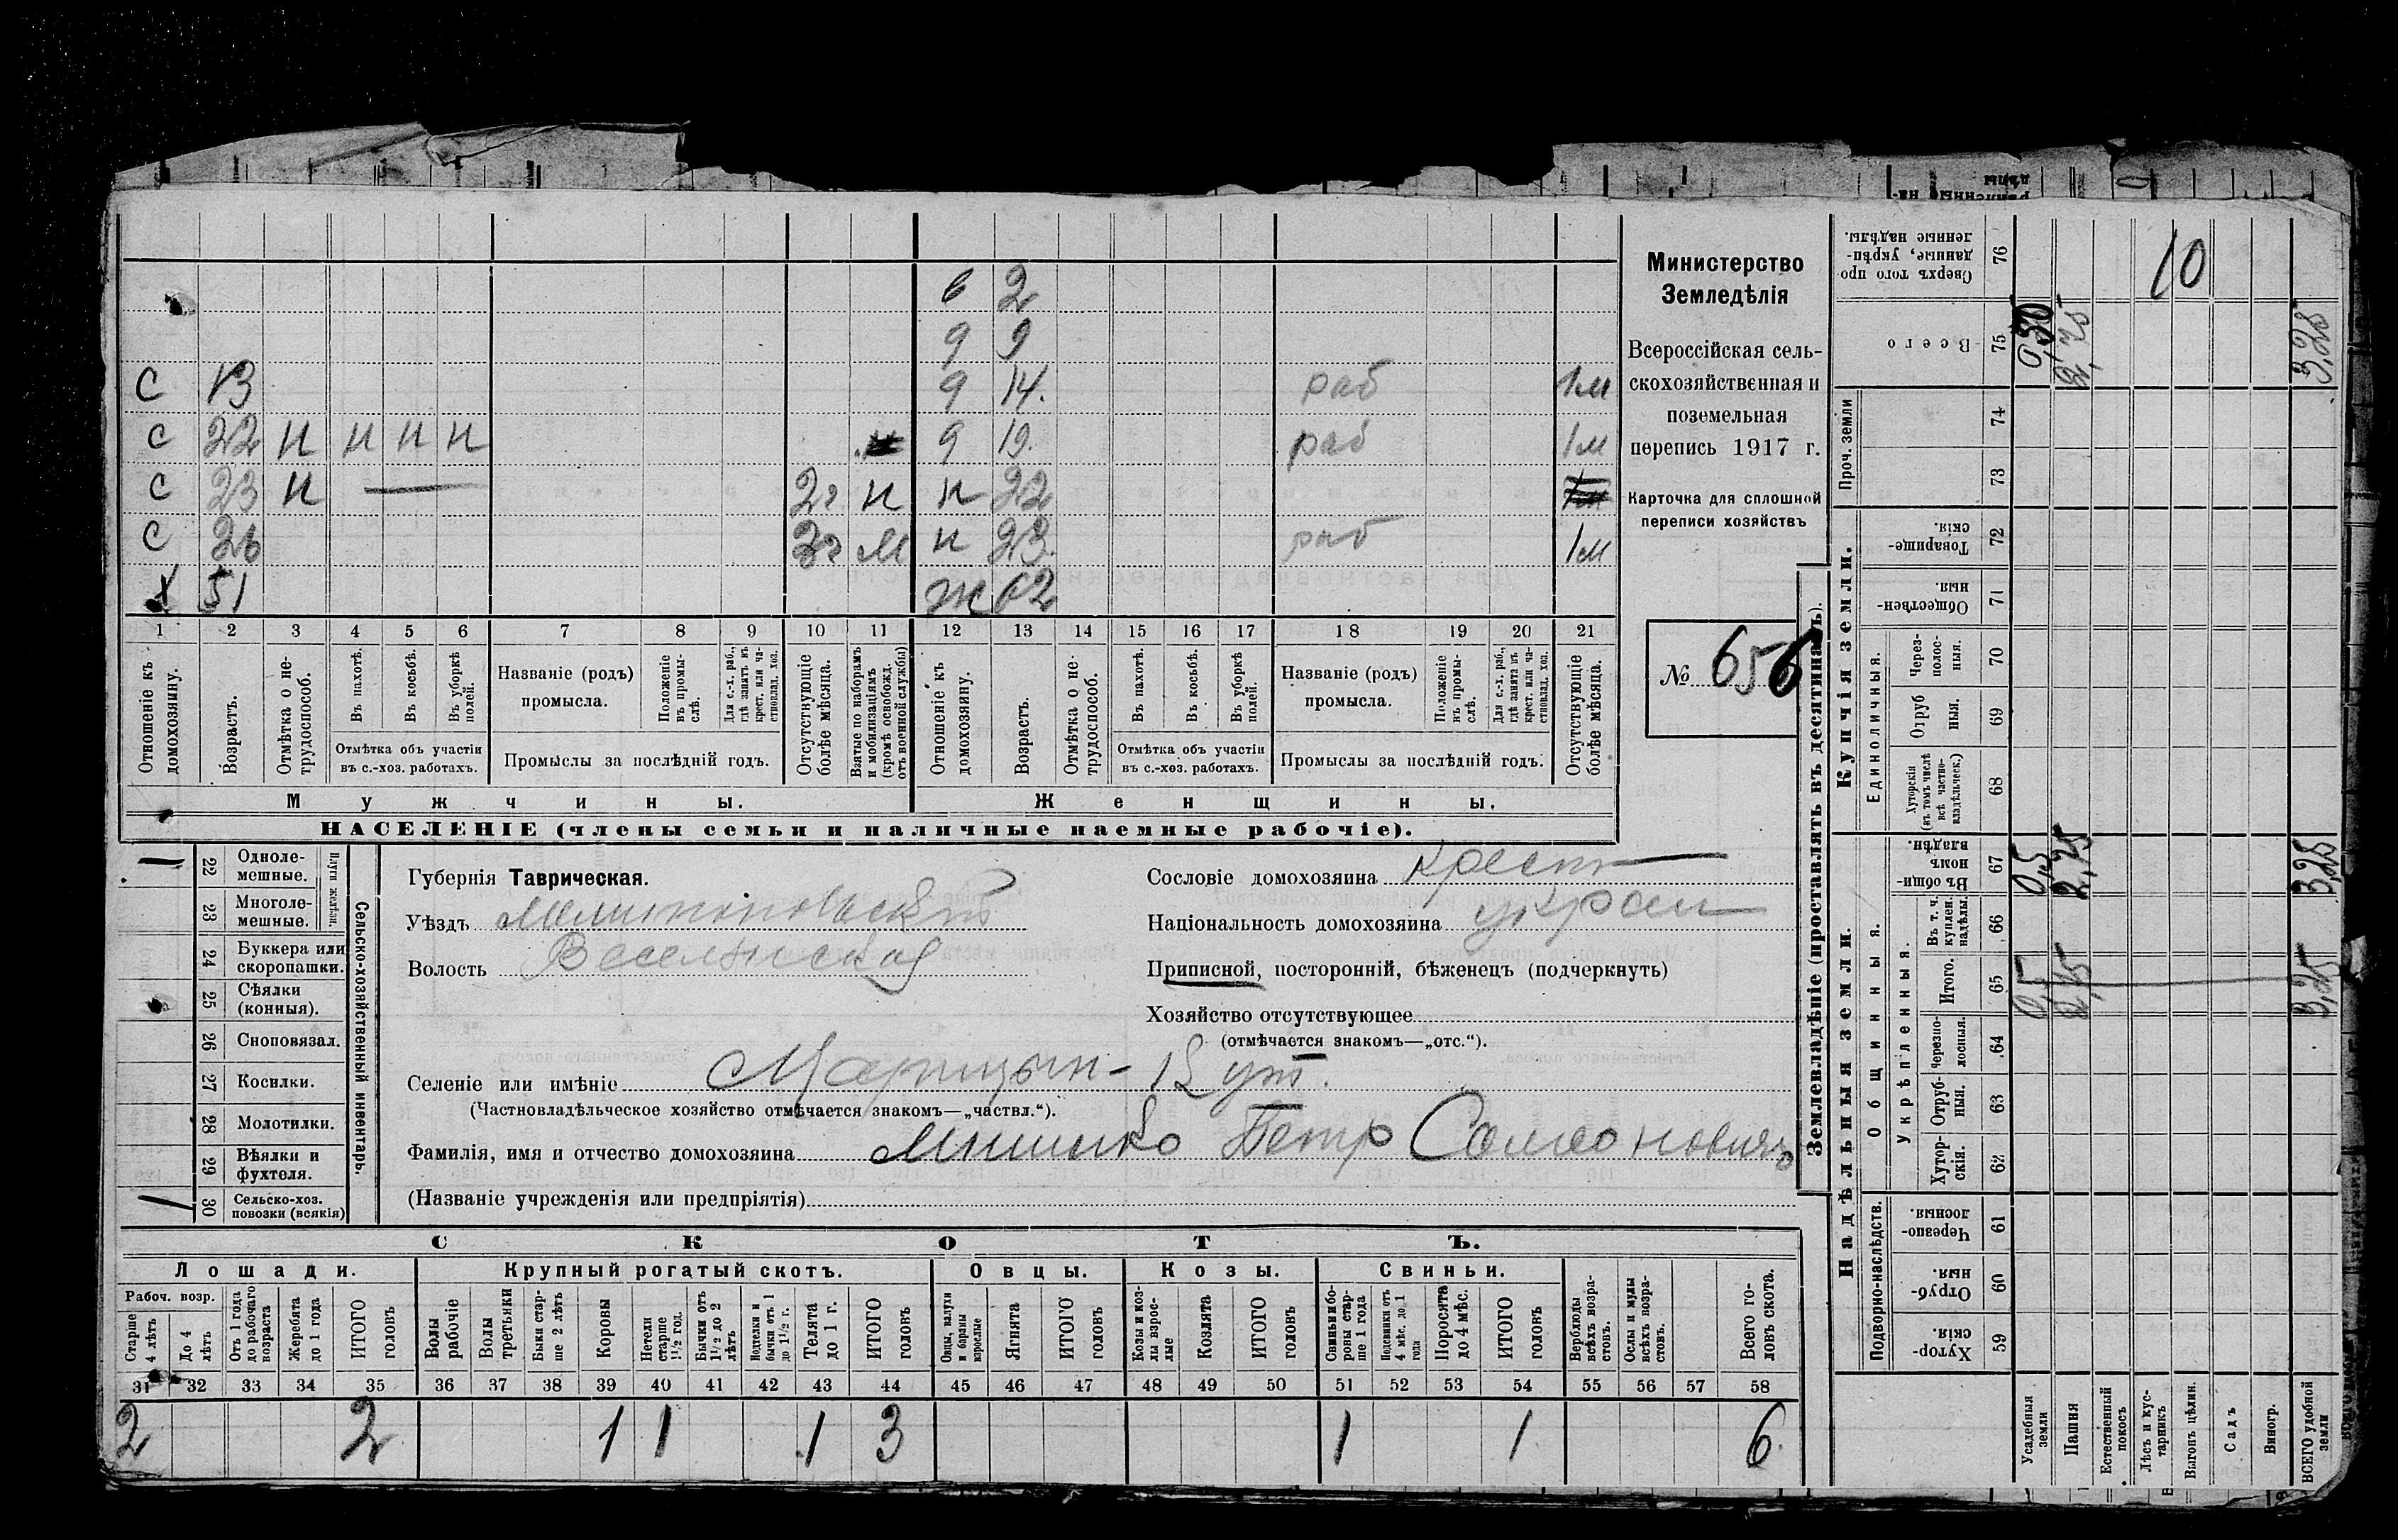 с 13 9 14. раб 1м
с 22 н н н н 9 19. раб 1м
с 23 н 2г н н 22
с 26 3г м н 23. раб 1м
х 51 ж 62
6 2
9 9
1 2 3 4 5 6 7 8 9 10 11 12 13 14 15 16 17 18 19 20 21
Отношеніе къ домохозяину.
Возрастъ.
Отмѣтка о нетрудоспособ.
Въ пахотѣ.
Въ косьбѣ.
Въ уборкѣ полей.
Отмѣтка объ участіи въ с.-хоз. работахъ.
Названіе (родъ) промысла.
Положеніе въ промыслѣ.
Для с.-х. раб., гдѣ занятъ въ крест. или частновлад. хоз.
Промыслы за послѣдній годъ.
Отсутствующіе болѣе мѣсяца.
Взятые по наборамъ и мобилизаціямъ (кромѣ освобожд. отъ военной службы)
Отношеніе къ домохозяину.
Возрастъ.
Отмѣтка о нетрудоспособ.
Въ пахотѣ.
Въ косьбѣ.
Въ уборкѣ полей.
Отмѣтка объ участіи въ с.-хоз. работахъ.
Названіе (родъ) промысла.
Положеніе въ промыслѣ.
Для с.-х. раб., гдѣ занята въ крест. или частновлад. хоз.
Промыслы за послѣдній годъ.
Отсутствующіе болѣе мѣсяца.
Мужчины. Женщины.
НАСЕЛЕНІЕ (члены семьи и наличные наемные рабочіе).
Министерство
Земледѣлія
Всероссійская сель-
скохозяйственная и
поземельная
перепись 1917 г.
Карточка для сплошной
переписи хозяйствъ
№ 656
Сельско-хозяйственный инвентарь.
Плуги желѣзн.
22 Одноле-
мешные. 1
23 Многоле-
мешные.
24 Буккера или
скоропашки.
25 Сѣялки
(конныя).
26 Сноповязал.
27 Косилки.
28 Молотилки.
29 Вѣялки и
фухтеля.
30 Сельско-хоз.
повозки (всякія) 1
Губернія Таврическая.
Уѣздъ Мелитопольскій
Волость Веселянская
Сословіе домохозяина крест
Національность домохозяина украи
Приписной, посторонній, бѣженецъ (подчеркнуть)
Хозяйство отсутствующее
(отмѣчается знакомъ—„отс.“).
Селеніе или имѣніе
(Частновладѣльческое хозяйство отмѣчается знакомъ—„частвл.“).
Фамилія, имя и отчество домохозяина Петр
(Названіе учрежденія или предпріятія)
СКОТЪ.
Лошади. Крупный рогатый скотъ. Овцы. Козы. Свиньи.
Рабоч. возр.
Старше 4 лѣтъ
До 4 лѣтъ
Отъ 1 года до рабочаго возраста
Жеребята до 1 года
ИТОГО головъ
Волы рабочіе
Волы третьяки
Быки старше 2 лѣтъ
Коровы
Нетели старше 1½ год.
Бычки отъ 1½ до 2 лѣтъ
Нетелки и бычки отъ 1 до 1½ г.
Телята до 1 г.
ИТОГО головъ
Овцы, валухи и бараны взрослые
Ягнята
ИТОГО головъ
Козы и козлы взрослые
Козлята
ИТОГО головъ
Свиньи и боровы старше 1 года
Подсвинки отъ 4 мѣс. до 1 года
Поросята до 4 мѣс.
ИТОГО головъ
Верблюды всѣхъ возрастовъ.
Ослы и мулы всѣхъ возрастовъ.
Всего головъ скота.
31 32 33 34 35 36 37 38 39 40 41 42 43 44 45 46 47 48 49 50 51 52 53 54 55 56 57 58
2 2 1 1 1 3 1 1 6
Землевладѣніе (проставлять въ десятинахъ).
Надѣльныя земли.
Купчія земли.
Проч. земли
Подворно-наслѣдств.
Общинныя.
Укрѣпленныя.
Единоличныя.
Хуторскія. 59
Отрубныя. 60
Черезполосныя. 61
Хуторскія. 62
Отрубныя. 63
Черезполосныя. 64
Итого. 65 0,5 2,75 3,25
Въ т. ч. куплен. надѣлы. 66
Въ общинномъ владѣн. 67 0,5 2,75 3,25
Хуторскія (въ томъ числѣ всѣ частновладѣльческ.) 68
Отрубныя. 69
Черезполосныя. 70
Общественныя. 71
Товарищескія. 72
73
74
Всего 75 0,50 2,75 3,25
Сверхъ того проданные, укрѣпленные надѣлы. 76 10
Усадебныя земли
Пашня
Естественный покосъ
Лѣсъ и кустарникъ
Выгонъ цѣлин.
Садъ
Виногр.
ВСЕГО удобной земли